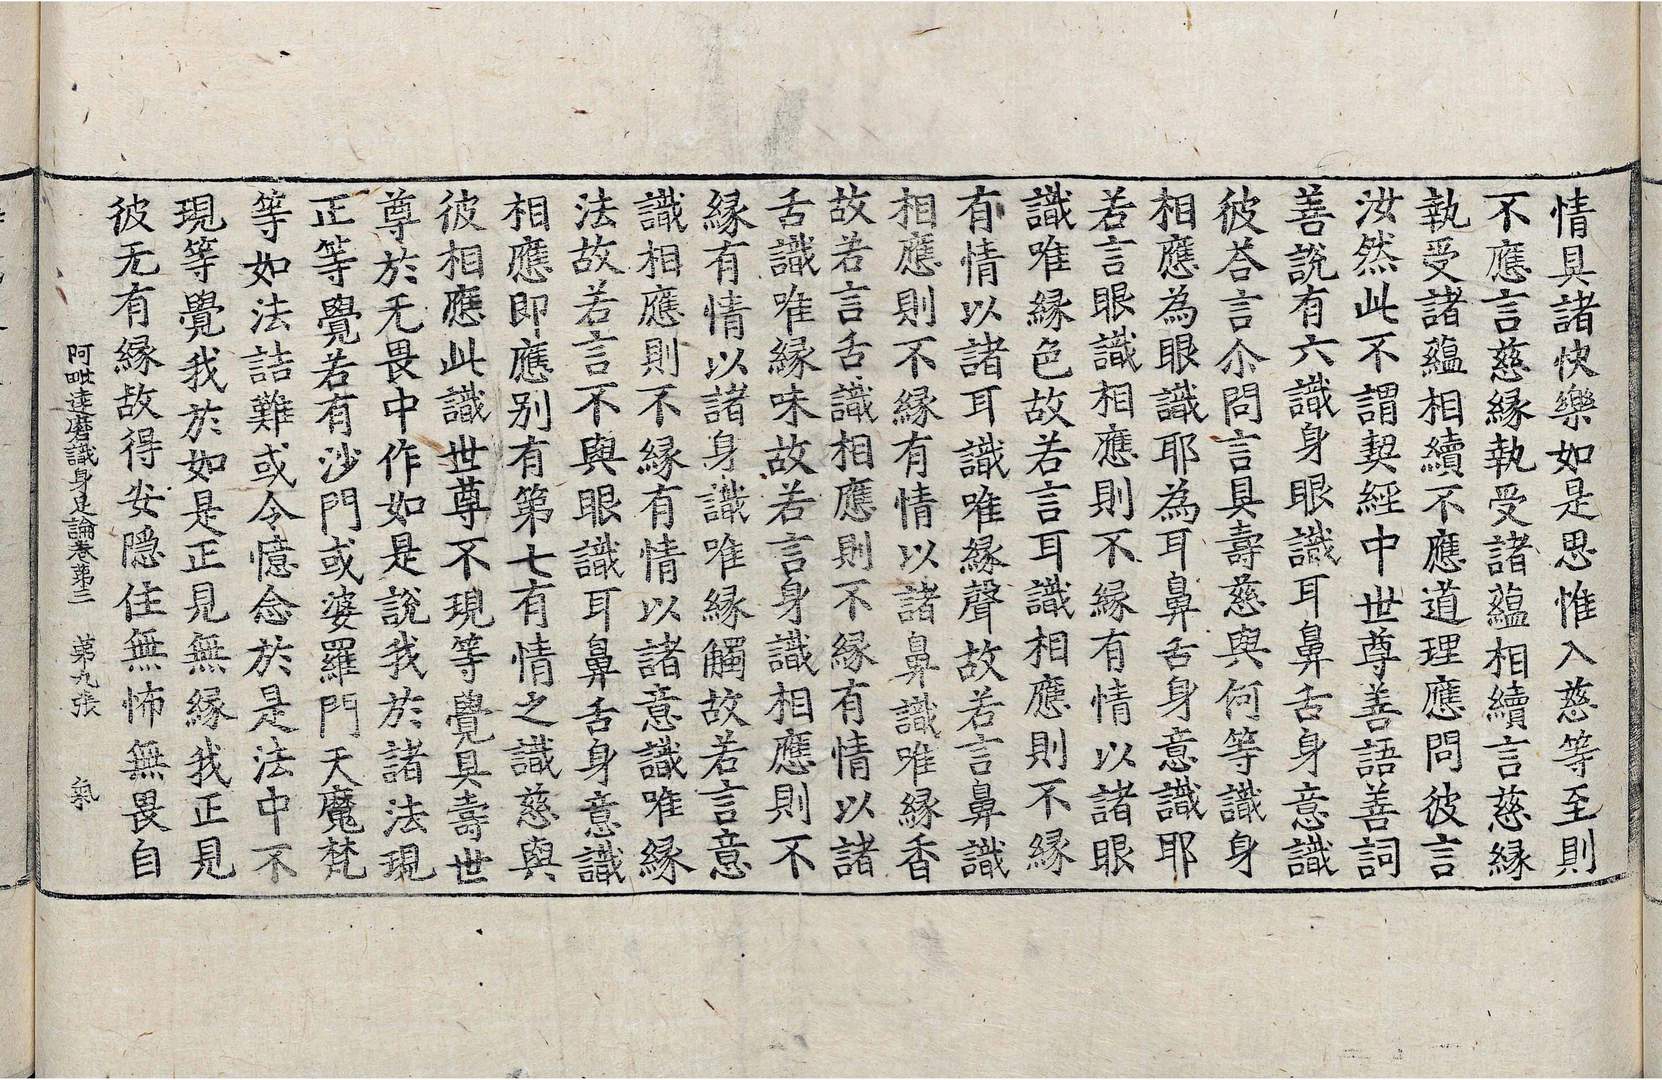 情具諸快樂如是思惟入慈等至則
不應言慈縁執受諸蘊相續言慈縁
執受諸蘊相續不應道理應問彼言
汝然此不謂契經中世尊善語善詞
善說有六識身眼識耳鼻舌身意識
彼荅言尒問言具壽慈與何等識身
相應為眼識耶為耳鼻舌身意識耶
若言眼識相應則不縁有情以諸眼
識唯縁色故若言耳識相應則不縁
有情以諸耳識唯縁聲故若言鼻識
相應則不縁有情以諸鼻識唯縁香
故若言舌識相應則不縁有情以諸
舌識唯縁味故若言身識相應則不
縁有情以諸身識唯縁觸故若言意
識相應則不縁有情以諸意識唯縁
法故若言不與眼識耳鼻舌身意識
相應即應別有第七有情之識慈與
彼相應此識世尊不現等覺具壽世
尊於无畏中作如是說我於諸法現
正等覺若有沙門或婆羅門天魔梵
等如法詰難或令憶念於是法中不
現等覺我於如是正見無縁我正見
彼无有縁故得安隠住無怖無畏自
阿毗達磨識身足論卷第三　第九張　氣